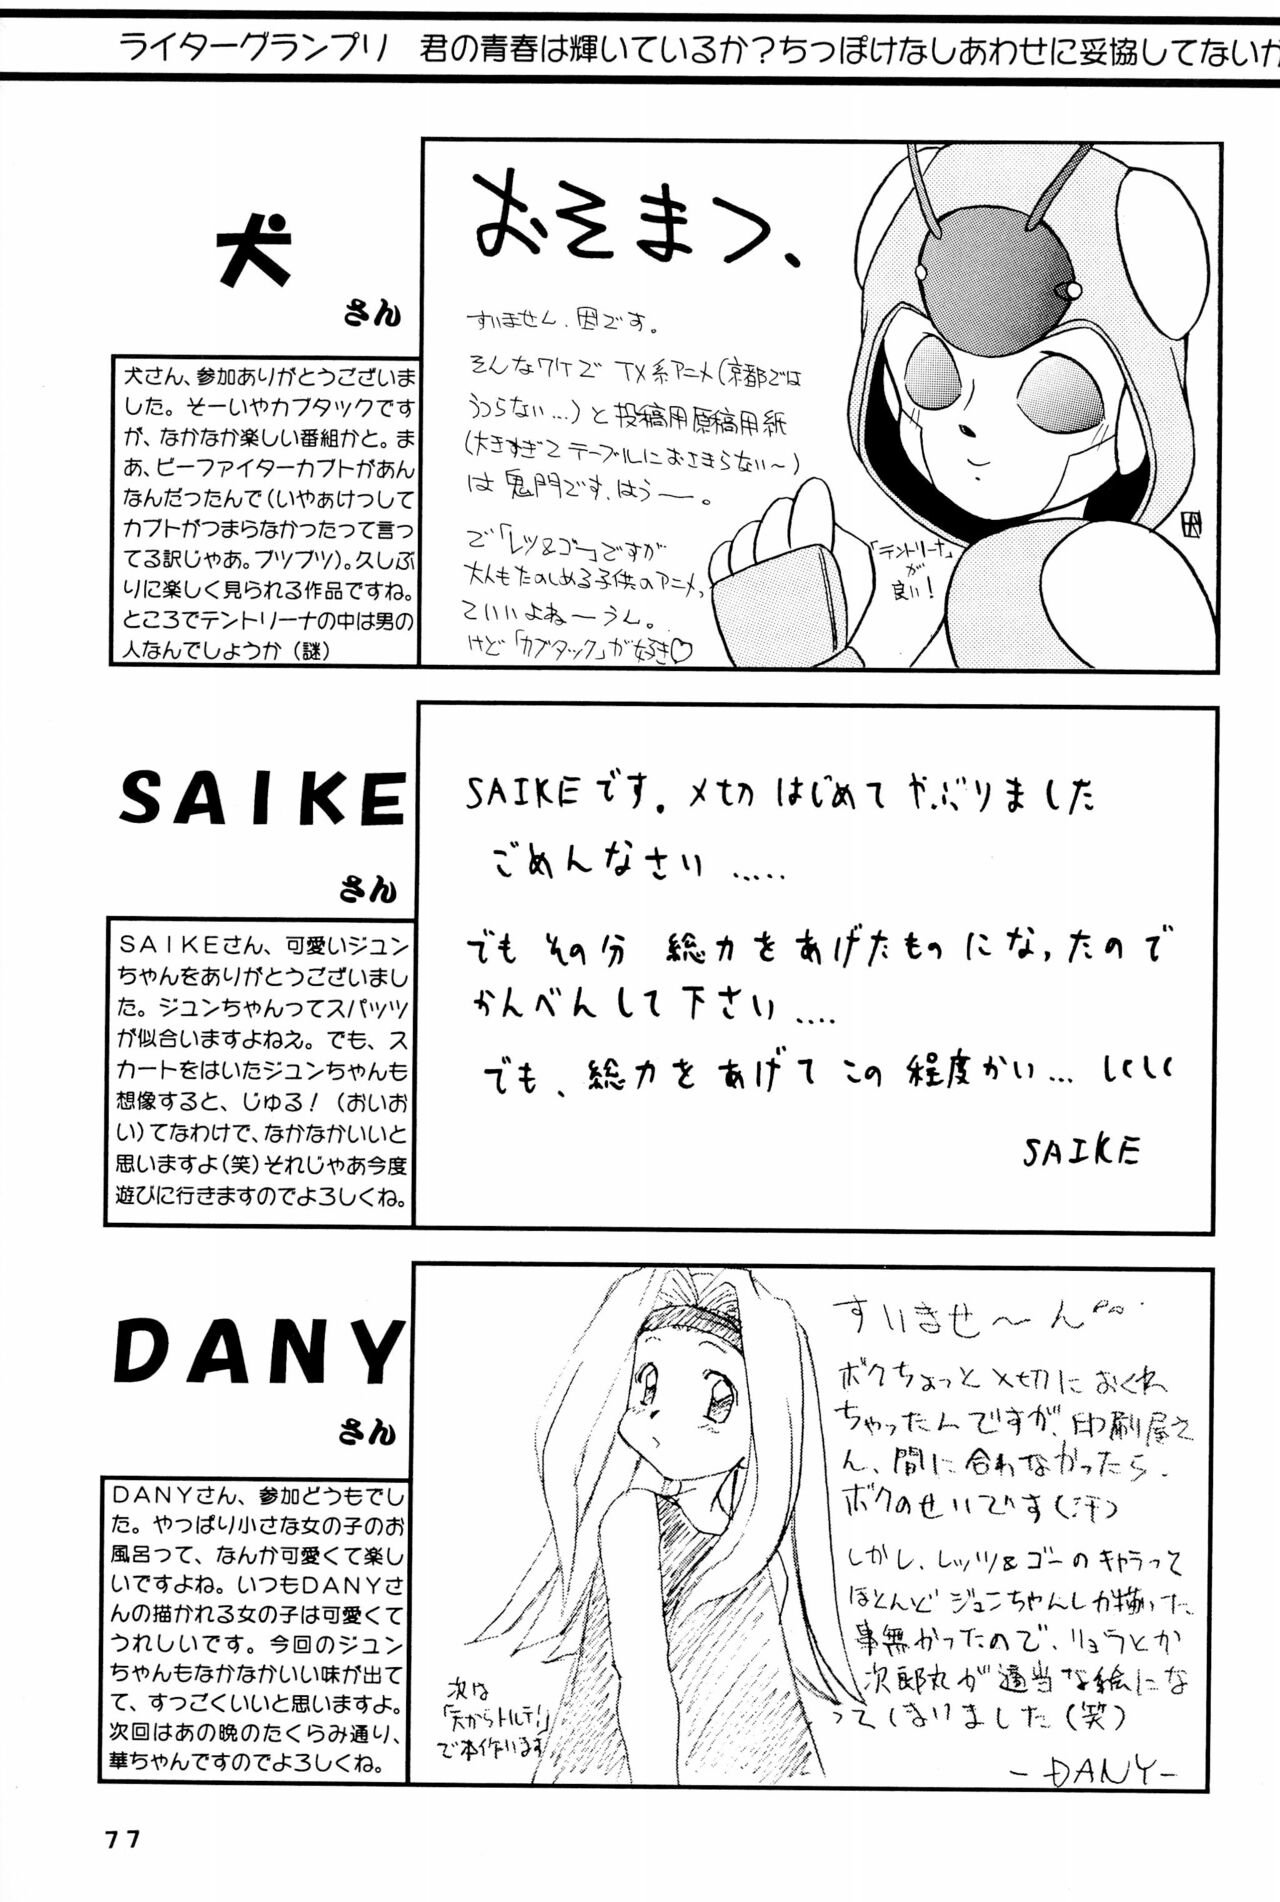 ライターグランプリ　君の青春は輝いているか？ちっぽけなしあわせに妥協してないか
犬
さん
犬さん、参加ありがとうございま
した。そーいやカブタックです
が、なかなか楽しい番組かと。ま
あ、ビーファイターカブトがあん
なんだったんで（いやぁけっして
カブトがつまらなかったって言っ
てる訳じゃあ。ブツブツ）。久しぶ
りに楽しく見られる作品ですね。
ところでテントリーナの中は男の
人なんでしょうか（謎）
おそまつ、
すいません、因です。
そんなワケで TX系アニメ（京都では
うつらない…）と投稿用原稿用紙
（大きすぎて テーブルにおさまらない〜）
は鬼門です、はうー。
で「レツ&ゴー」ですが
大人もたのしめる子供のアニメっ
ていいよねーうん。
けど「カブタック」が好き♡
「テントリーナ」
が
良い！
SAIKE
さん
ＳＡＩＫＥさん、可愛いジュン
ちゃんをありがとうございまし
た。ジュンちゃんってスパッツ
が似合いますよねえ。でも、ス
カートをはいたジュンちゃんも
想像すると、じゅる！（おいお
い）てなわけで、なかなかいいと
思いますよ（笑）それじゃあ今度
遊びに行きますのでよろしくね。
SAIKEです。〆切 はじめて やぶりました
ごめんなさい .....
でも その分 総力を あげたもの に なったので
かんべん して 下さい ....
でも、総力を あげて この 程度かい... しくしく
SAIKE
DANY
さん
ＤＡＮＹさん、参加どうもでし
た。やっぱり小さな女の子のお
風呂って、なんか可愛くて楽し
いですよね。いつもＤＡＮＹさ
んの描かれる女の子は可愛くて
うれしいです。今回のジュン
ちゃんもなかなかいい味が出て
て、すっごくいいと思いますよ。
次回はあの晩のたくらみ通り、
華ちゃんですのでよろしくね。
すいませ〜ん
ボクちょっと 〆切に おくれ
ちゃったんですが、印刷屋さ
ん、間に合わなかったら、
ボクのせいです（汗）
しかし、レッツ&ゴーのキャラって
ほとんど ジュンちゃんしか描いた
事無かったので、リョウとか
次郎丸が適当な絵にな
ってしまりました（笑）
-DANY-
次は
「天からトルテ！」
で本作ります
77